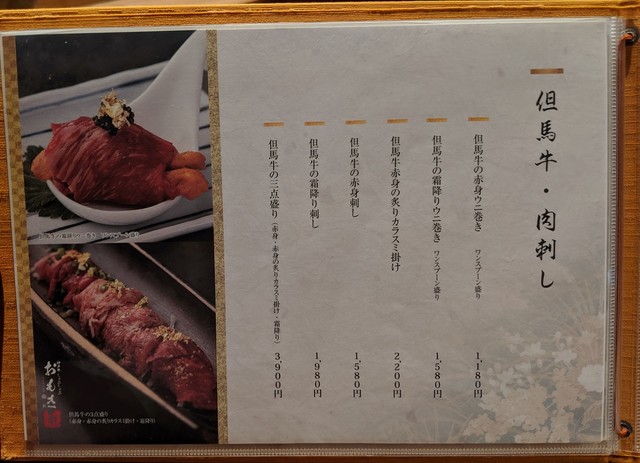 但馬牛・肉刺し
但馬牛の赤身ウニ巻き ワンスプーン盛り 1,180円
但馬牛の霜降りウニ巻き ワンスプーン盛り 1,580円
但馬牛赤身の炙りカラスミ掛け 2,200円
但馬牛の赤身刺し 1,580円
但馬牛の霜降り刺し 1,980円
但馬牛の三点盛り（赤身・赤身の炙りカラスミ掛け・霜降り） 3,900円
但馬牛の霜降りウニ巻き ワンスプーン盛り
おもき
但馬牛の三点盛り
（赤身・赤身の炙りカラスミ掛け・霜降り）